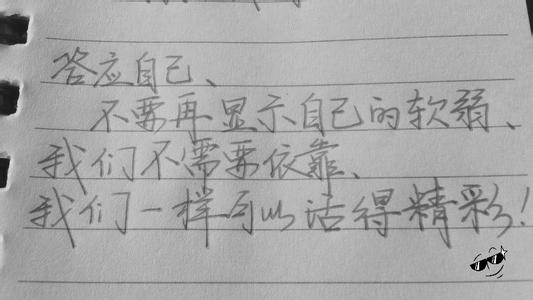 答应自己、
不要再显示自己的软弱、
我们不需要依靠、
我们一样可以活得精彩!